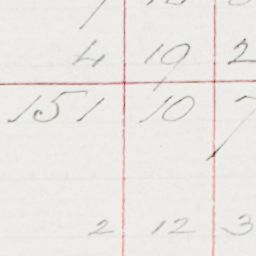 4 19 2
151 10 7
2 12 3